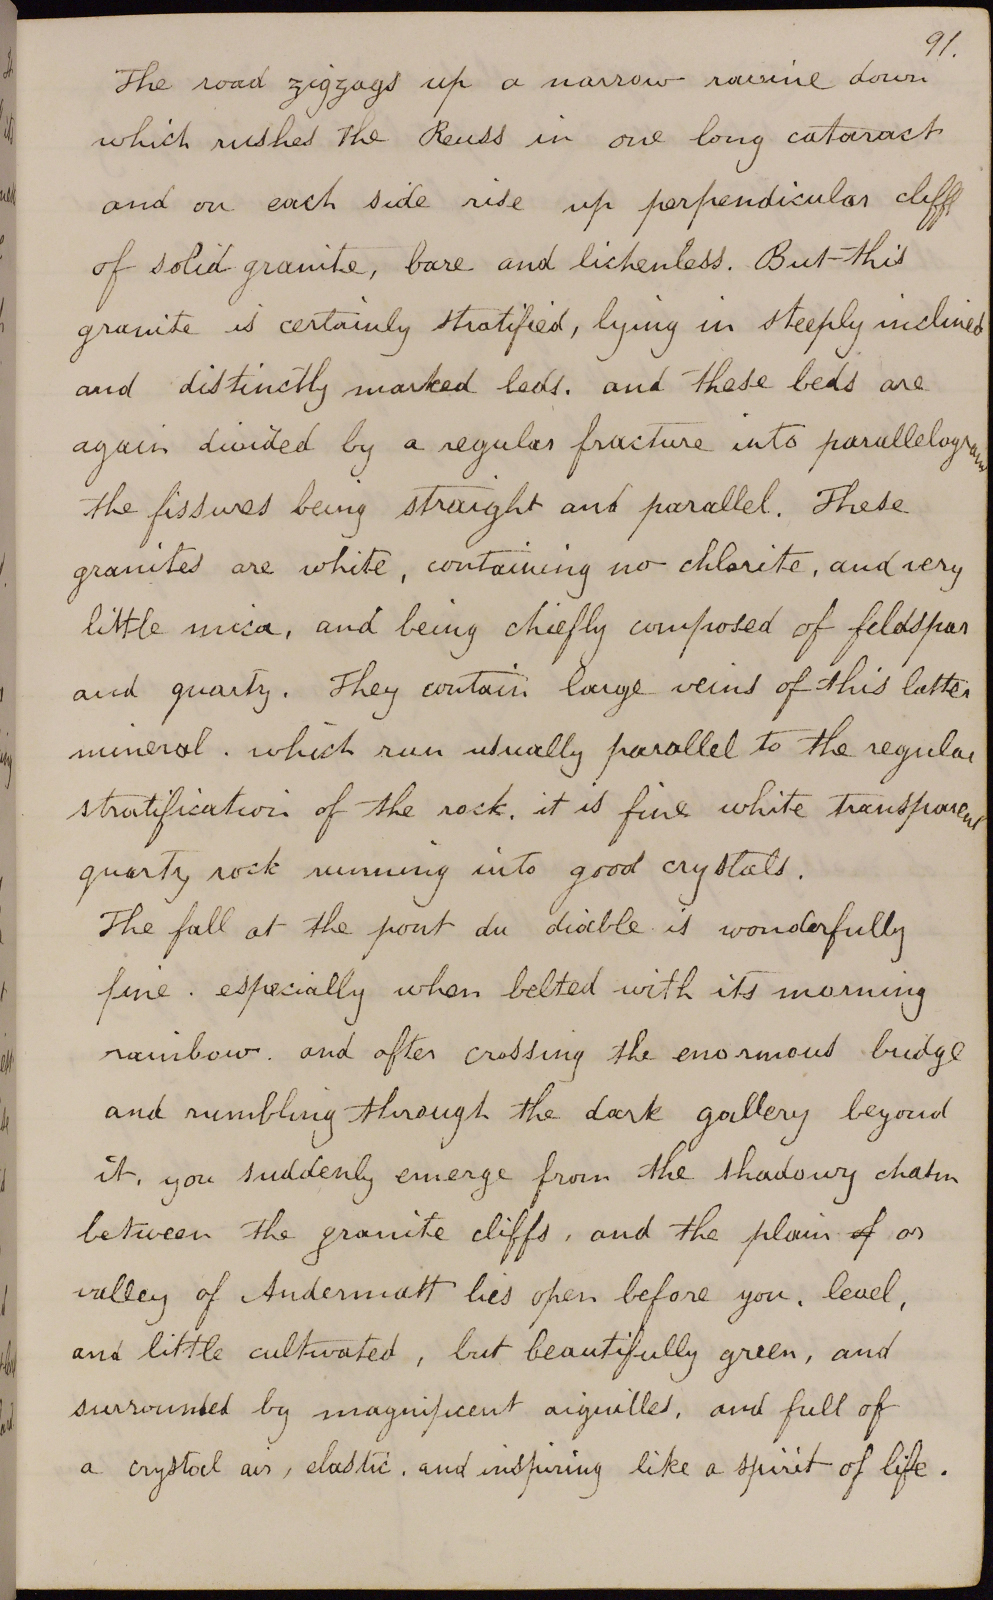 91.
The road zigzags up a narrow ravine down
which rushes the Reuss in one long cataract
and on each side rise up perpendicular cliffs
of solid granite, bare and lichenless. But this
granite is certainly stratified, lying in steeply inclined
and distinctly marked beds. and these beds are
again divided by a regular fracture into parallelograms
the fissures being straight and parallel. These
granites are white, containing no chlorite, and very
little mica, and being chiefly composed of feldspar
and quartz. They contain large veins of this latter
mineral. which run usually parallel to the regular
stratification of the rock. it is fine white transparent
quartz rock running into good crystals.
The fall at the pont du diable is wonderfully
fine. especially when belted with its morning
rainbow. and after crossing the enormous bridge
and rumbling through the dark gallery beyond
it. you suddenly emerge from the shadowy chasm
between the granite cliffs, and the plain of or
valley of Andermatt lies open before you. level,
and little cultivated, but beautifully green, and
surrounded by magnificent aiguilles. and full of
a crystal air, elastic. and inspiring like a spirit of life.